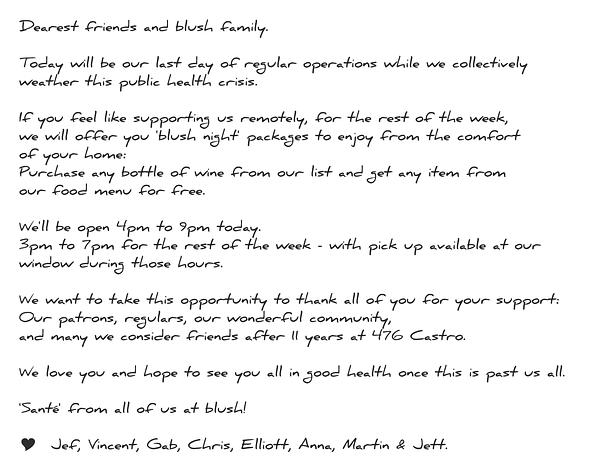 Dearest friends and blush family.
Today will be our last day of regular operations while we collectively
weather this public health crisis.
If you feel like supporting us remotely, for the rest of the week,
we will offer you 'blush night' packages to enjoy from the comfort
of your home:
Purchase any bottle of wine from our list and get any item from
our food menu for free.
We'll be open 4pm to 9pm today.
3pm to 7pm for the rest of the week - with pick up available at our
window during those hours.
We want to take this opportunity to thank all of you for your support:
Our patrons, regulars, our wonderful community,
and many we consider friends after 11 years at 476 Castro.
We love you and hope to see you all in good health once this is past us all.
'Santé' from all of us at blush!
♥ Jef, Vincent, Gab, Chris, Elliott, Anna, Martin & Jett.